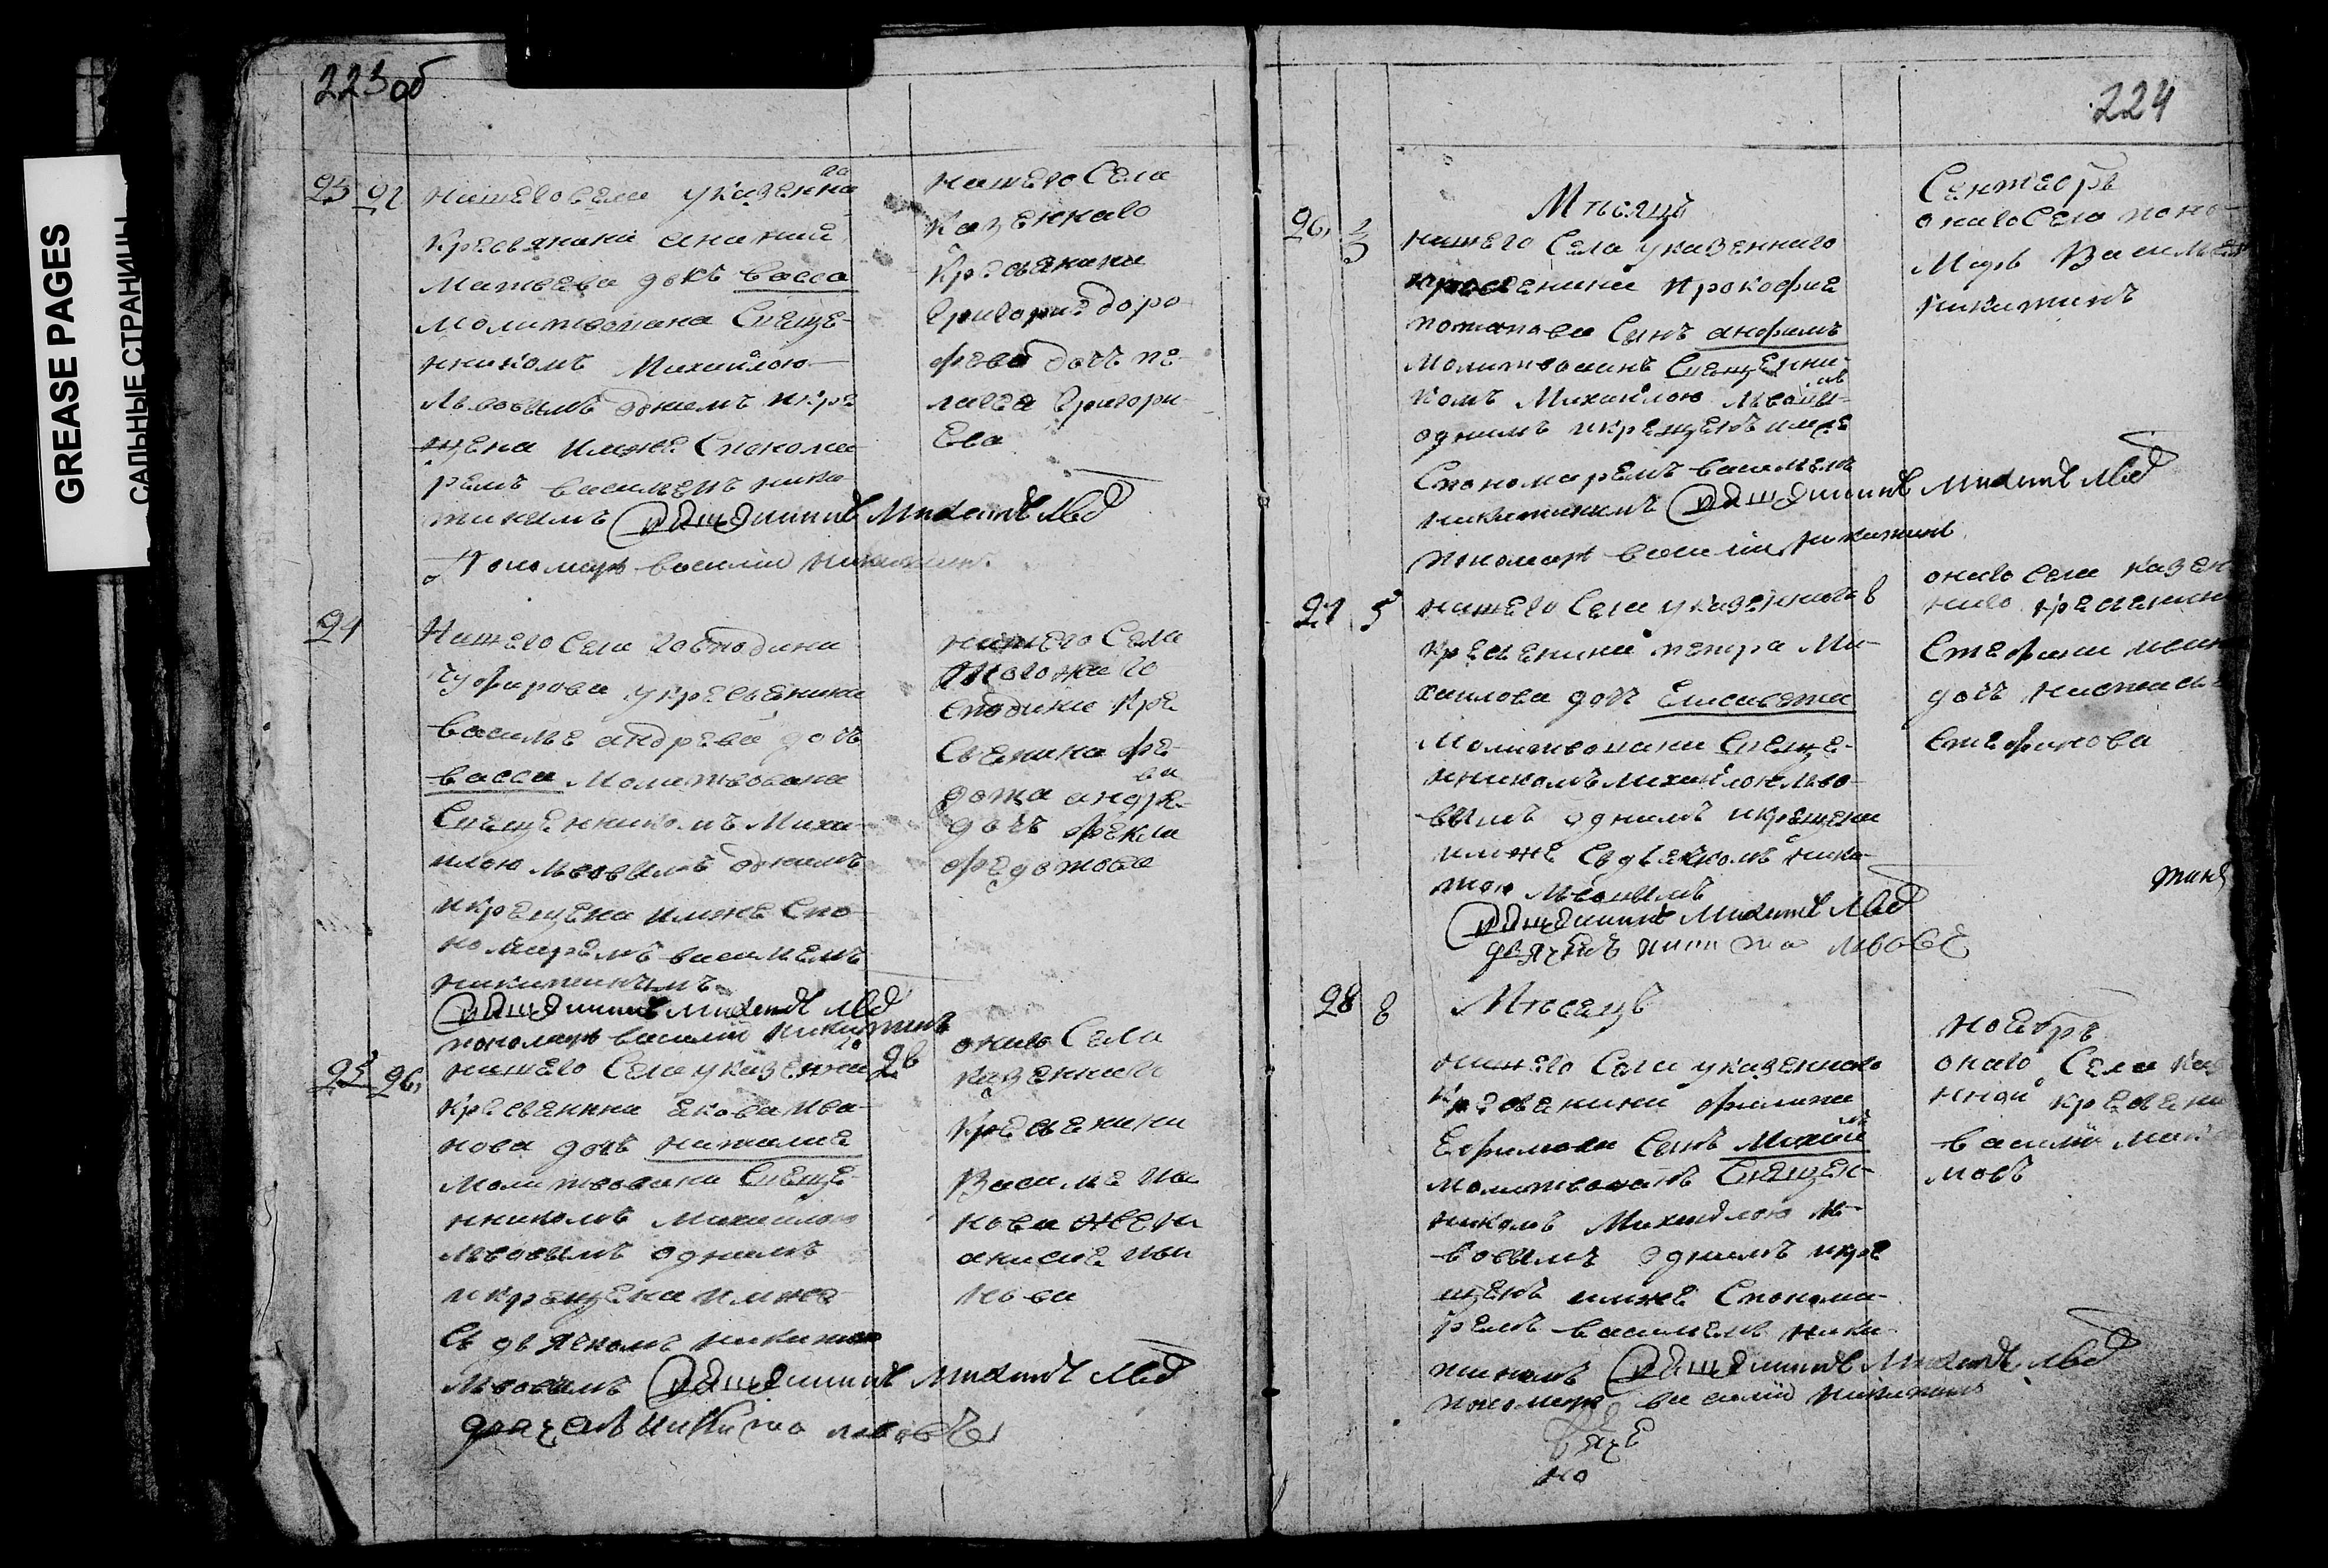 GREASE PAGES
САЛЬНЫЕ СТРАНИЦЫ
223об
23
нашего села у казенна го
кресьянина
Матвеева дочь васса
молитвована Свеще-
нникомъ Михайлою
Львовымъ однемъ икре
щена имже Спонома
ремъ васильемъ ники
тинымъ Священникъ Михаилъ Львовъ
Пономарь василий никитинъ
нашего Села
казеннаго
кресьянина
Григорий доро
фева дочъ пе
лагея Григори
Ева
24
Нашего села Господина
у кресьянина
василье андрева дочь
васса молитвована
Священникомъ Миха-
илою львовымъ однимъ
икрещена имже Спо-
номаремъ васильемъ
никитинымъ
Священникъ Михаилъ Львовъ
пономарь василий никитинъ
нашего Села
Тогожа го
сподина кре
сьянина фе
дота андре- ва
дочъ фекла
федотова
25 26
нашего Села у казенна го 2в
кресьянина екова ива-
нова дочь наталие
молитвована Свеще-
нникомъ Михаилою
львовымъ однимъ
икрещена имже
Съ дьячкомъ никитою
львовымъ Священникъ Михаилъ Львовъ
дьячекъ никита львовъ
онаго Села
казеннаго
кресьянина
Василье ива
нова жена
анисие ива
нова
224
Мтсяцъ
Сентебрь
26
нашего Села у казеннаго
кресенина Прокофие
потапова Сынъ анфимъ
молитвованъ Священни-
комъ Михайлою львовы мъ
однимъ икрещенъ имже
Спономаремъ васильемъ
никитинымъ Священникъ Михаилъ Львовъ
пономарь василий никитинъ
онаго Села поно-
Марь Василей
никитинъ
27 5
нашего Села у казеннаго в
кресьенина петра Ми-
хаилова дочь Елисавета
Молитвована Свеще-
нникомъ михайлою льво-
вымъ однимъ икрещена
имже Съ дьячкомъ ники-
тою львовымъ
Священникъ Михаилъ Львовъ
дьячекъ никита львовъ
онаго села казен
наго кресьянина
Стефана
дочъ настась
Стефанова
28 8
Мтсецъ
ноебрь
нашего Села у казеннаго
кресьенина филипа
Ефимова Сынъ Михаи лъ
молитвованъ Священ-
никомъ Михайлою ль-
вовымъ однимъ икре
щенъ имже Спонома-
ремъ васильемъ ники-
тинымъ Священникъ Михаилъ Львовъ
пономарь василий никитинъ
онаго Села ка
нной кресьени
василий
мовъ
но